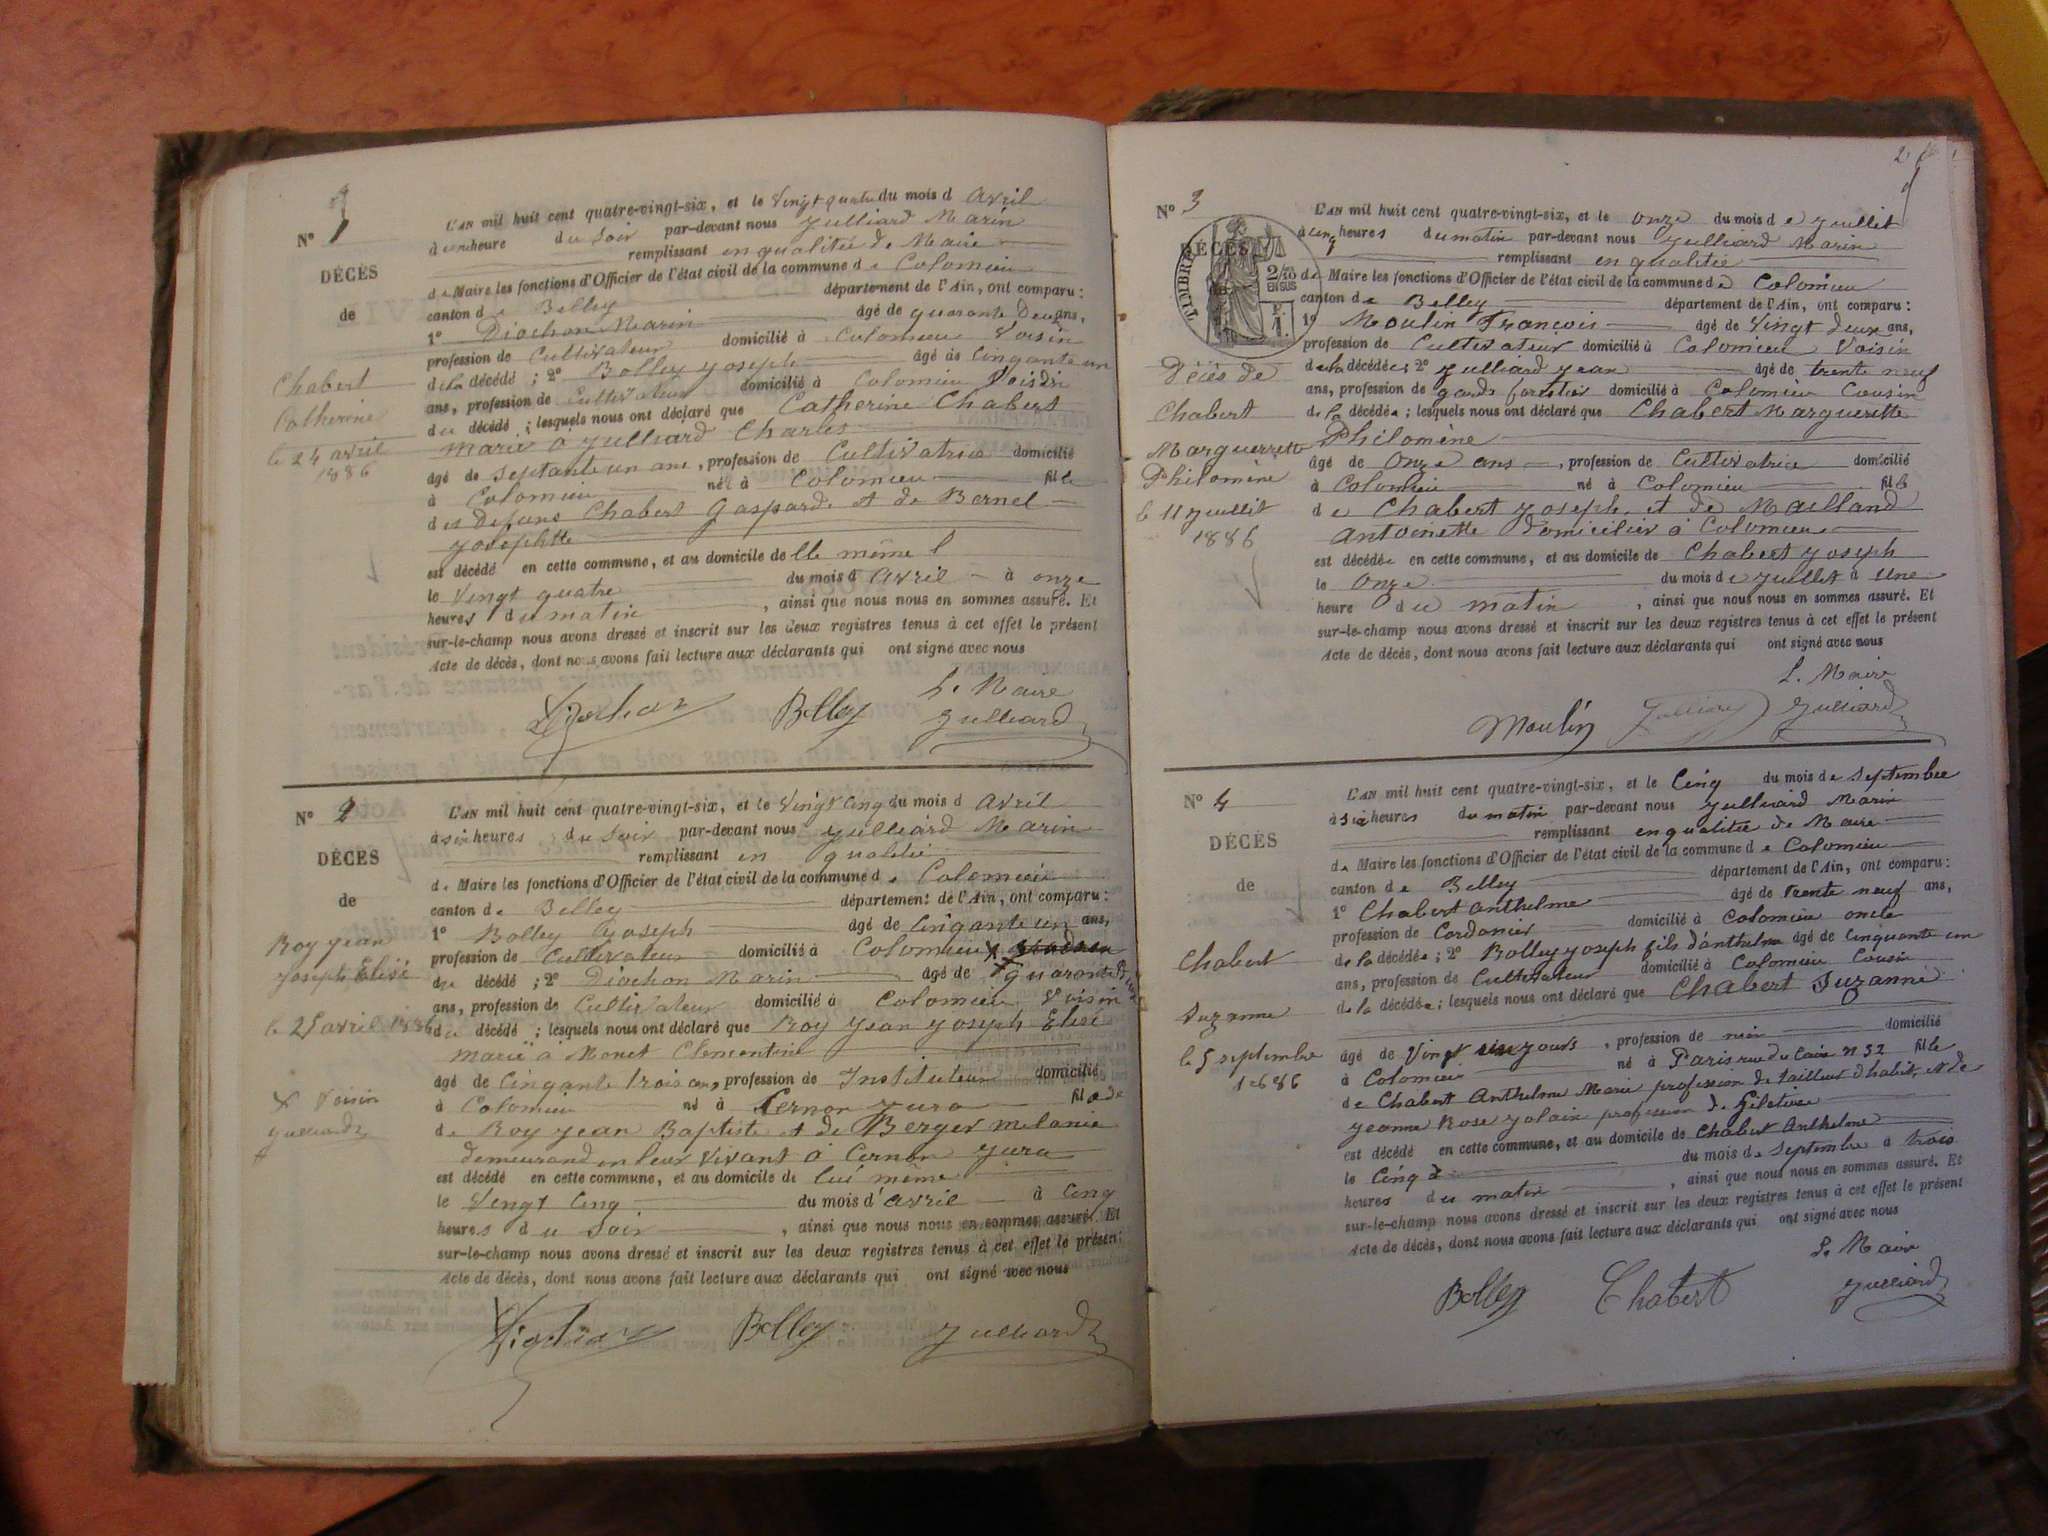 N° 1
DÉCÈS
de
Chabert
Catherine
le 24 avril
1886
L'AN mil huit cent quatre-vingt-six, et le Vingt quatre du mois d avril
à une heure du soir par-devant nous Julliard Marin
remplissant en qualitée de Maire
de Maire les fonctions d'Officier de l'état civil de la commune de Colomieu
canton de Belley département de l'Ain, ont comparu :
1° Diochon Marin âgé de quarante deux ans,
profession de Cultivateur domicilié à Colomieu Voisin
de la décédé ; 2° Bolley Joseph âgé de Cinqante un
ans, profession de Cultivateur domicilié à Colomieu Voisin
du décédé ; lesquels nous ont déclaré que Catherine Chabert
mariée à Julliard Charles
âgé de Septante un ans, profession de Cultivatrice domicilié
à Colomieu né à Colomieu fille
des defuns Chabert Gaspard et de Bernel
Josephtte
est décédé en cette commune, et au domicile de lle même
le Vingt quatre du mois d avril à onze
heures du matin, ainsi que nous nous en sommes assuré. Et
sur-le-champ nous avons dressé et inscrit sur les deux registres tenus à cet effet le présent
Acte de décès, dont nous avons fait lecture aux déclarants qui ont signé avec nous
L. Maire
Diochon Bolley Julliard
N° 2
DÉCÈS
de
Roy Jean
Joseph Elisé
le 25 avril 1886
X Voisin
Julliard
L'AN mil huit cent quatre-vingt-six, et le Vingt Cinq du mois d avril
à six heures du Soir par-devant nous Julliard Marin
remplissant en qualitée
de Maire les fonctions d'Officier de l'état civil de la commune de Colomieu
canton de Belley département de l'Ain, ont comparu :
1° Bolley Joseph âgé de Cinqante un ans,
profession de Cultivateur domicilié à Colomieu X
du décédé ; 2° Diochon Marin âgé de quarante deux
ans, profession de Cultivateur domicilié à Colomieu Voisin
du décédé ; lesquels nous ont déclaré que Roy Jean Joseph Elisé
marié à Monet Clementine
âgé de Cinqante trois ans, profession de Instituteur domicilié
à Colomieu né à Cernon Jura fils de
de Roy Jean Baptiste et de Berger Melanie
demeurand en leur Vivant à Cernon Jura
est décédé en cette commune, et au domicile de lui même
le Vingt Cinq du mois d'avril à Cinq
heures du Soir, ainsi que nous nous en sommes assuré. Et
sur-le-champ nous avons dressé et inscrit sur les deux registres tenus à cet effet le présent
Acte de décès, dont nous avons fait lecture aux déclarants qui ont signé avec nous
Diochon Bolley Julliard
2
N° 3
DÉCÈS
TIMBRE
2/10 EN SUS
Décès de
Chabert
Marguerrette
Philomène
le 11 Juillit
1886
L'AN mil huit cent quatre-vingt-six, et le onze du mois de Juillit
à cinq heures du matin par-devant nous Julliard Marin
remplissant en qualitée
de Maire les fonctions d'Officier de l'état civil de la commune de Colomieu
canton de Belley département de l'Ain, ont comparu :
1° Moulin François âgé de Vingt deux ans,
profession de Cultivateur domicilié à Colomieu Voisin
de la décédée ; 2° Julliard Jean âgé de trente neuf
ans, profession de garde forestier domicilié à Colomieu Cousin
de la décédée ; lesquels nous ont déclaré que Chabert Marguerette
Philomène
âgé de Onze ans, profession de Cultivatrice domicilié
à Colomieu né à Colomieu fille
de Chabert Joseph et de Mailland
Antoinette domicilier à Colomieu
est décédée en cette commune, et au domicile de Chabert Joseph
le Onze du mois de Juillet à Une
heure du matin, ainsi que nous nous en sommes assuré. Et
sur-le-champ nous avons dressé et inscrit sur les deux registres tenus à cet effet le présent
Acte de décès, dont nous avons fait lecture aux déclarants qui ont signé avec nous
L. Maire
Moulin Julliard Julliard
N° 4
DÉCÈS
de
Chabert
Suzanne
le 5 septembre
1886
L'AN mil huit cent quatre-vingt-six, et le Cinq du mois de Septembre
à six heures du matin par-devant nous Julliard Marin
remplissant en qualitée de Maire
de Maire les fonctions d'Officier de l'état civil de la commune de Colomieu
canton de Belley département de l'Ain, ont comparu :
1° Chabert Anthelme âgé de trente neuf ans,
profession de Cordonier domicilié à Colomieu oncle
de la décédée ; 2° Bolley Joseph fils d'anthelme âgé de Cinquante un
ans, profession de Cultivateur domicilié à Colomieu Cousin
de la décédée ; lesquels nous ont déclaré que Chabert Suzanne
âgé de Vingt jours, profession de rien domicilié
à Colomieu né à Paris rue du Caire n 32 fille
de Chabert Anthelme Marie profession de tailleur d'habit, et de
Jeanne Rose Jolain profession de Giletiere
est décédé en cette commune, et au domicile de Chabert Anthelme
le Cinq du mois de Septembre à trois
heures du matin, ainsi que nous nous en sommes assuré. Et
sur-le-champ nous avons dressé et inscrit sur les deux registres tenus à cet effet le présent
Acte de décès, dont nous avons fait lecture aux déclarants qui ont signé avec nous
L. Maire
Bolley Chabert Julliard